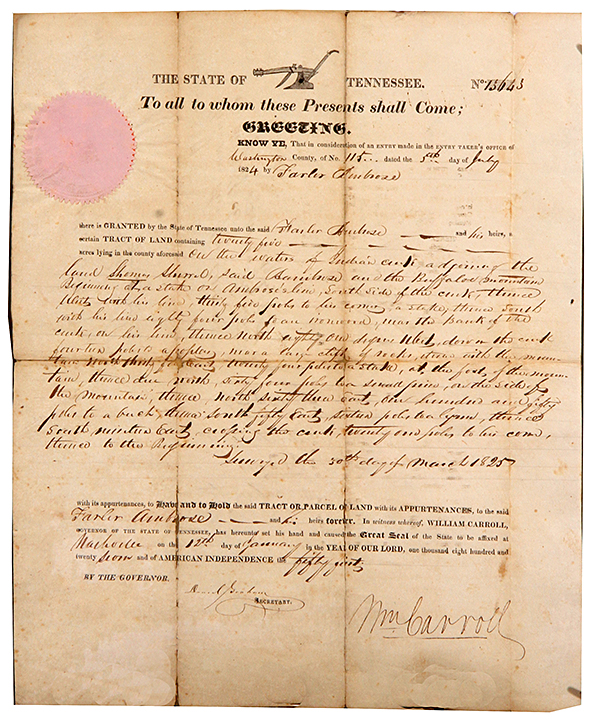 THE STATE OF TENNESSEE. No. 13643
To all to whom these Presents shall Come;
GREETING.
KNOW YE, That in consideration of an ENTRY MADE in the ENTRY TAKER'S OFFICE of
Washington County, of No. 115 dated the 5th day of July
1824 by Farler Ambrose
there is GRANTED by the State of Tennessee unto the said Farler Ambrose and his heirs, a
certain TRACT OF LAND containing twenty five
acres lying in the county aforesaid On the waters of Indian creek adjoining the
land Thomas said and the Buffalow mountain
Beginning at a stake on Ambrose's line, South side of the creek, thence
West with his line, thirty five poles to his corner, a stake, thence South
with his line eighty four poles to an ironwood, near the Bank of the
creek, on his line, thence North eighty one degrees West, down the creek
fourteen poles to a near a large cliff of rocks, thence with the moun-
tain North East twenty four poles to a stake, at the foot of the moun-
tain, thence due North, sixty four poles to a on the side of
the Mountain, thence North sixty three East, one hundred and fifty
poles to a buck, thence South fifty East, sixteen poles to a Lynn, thence
South nineteen East, crossing the creek, twenty one poles to his corner,
thence to the Beginning.
Surveyed the 30th day of March 1825
with its appurtenances, to Have and to Hold the said TRACT OR PARCEL OF LAND with its APPURTENANCES, to the said
Farler Ambrose and his heirs forever. In witness whereof, WILLIAM CARROLL,
GOVERNOR OF THE STATE OF TENNESSEE, has hereunto set his hand and caused the Great Seal of the State to be affixed at
Nashville on the 12th day of January in the YEAR OF OUR LORD, one thousand eight hundred and
twenty seven and of AMERICAN INDEPENDENCE the fifty first
BY THE GOVERNOR.
Daniel Graham
SECRETARY.
Wm. Carroll